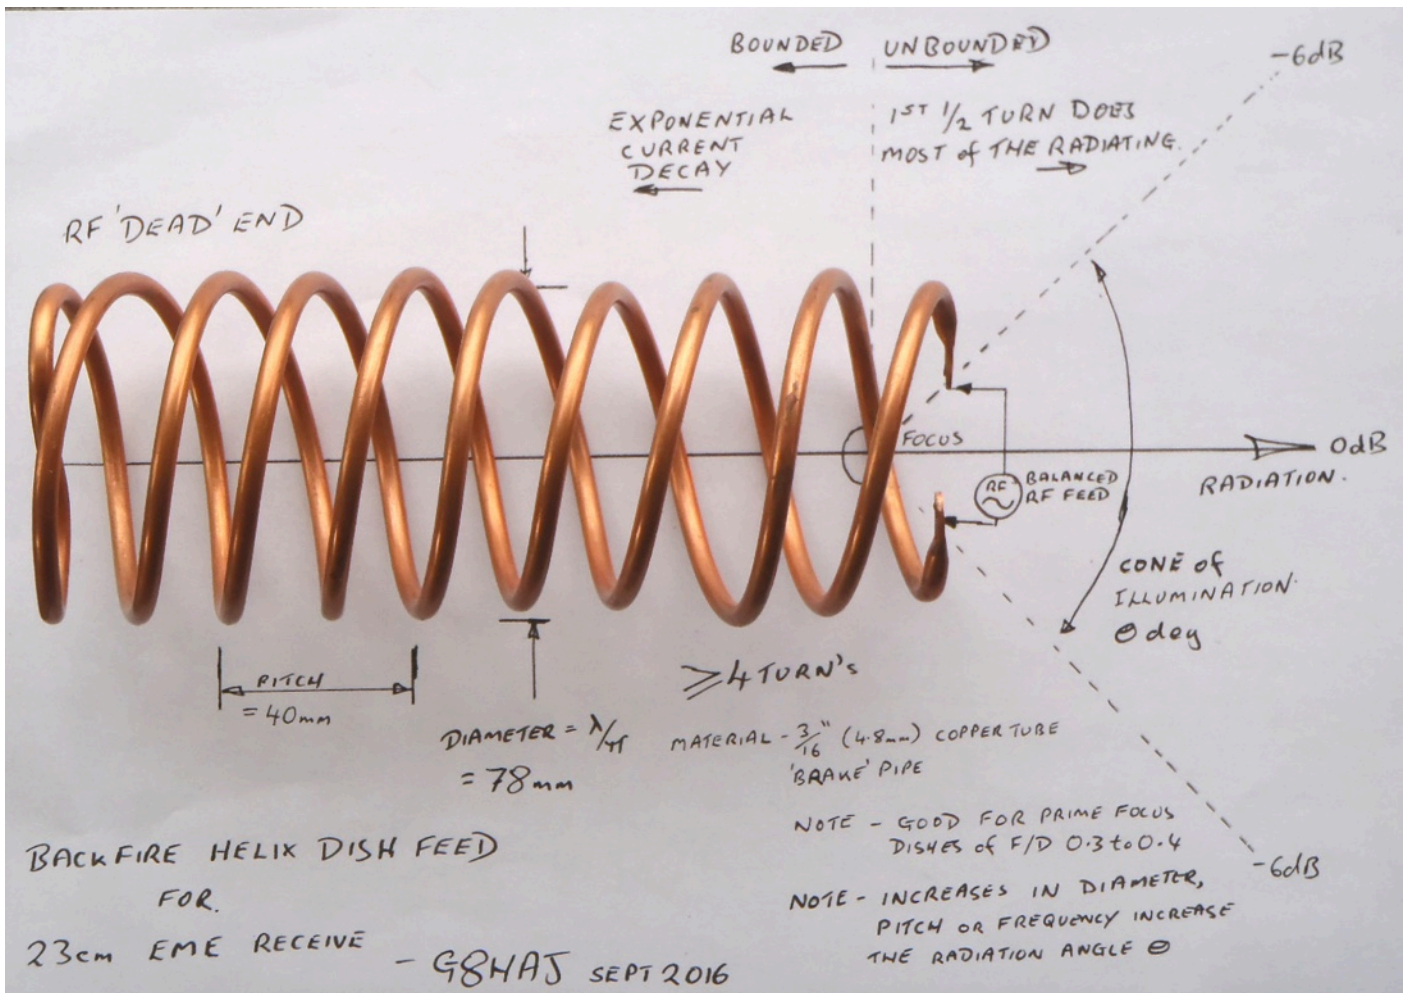 BOUNDED
UNBOUNDED
-6dB
EXPONENTIAL
CURRENT
DECAY
1ST 1/2 TURN DOES
MOST of THE RADIATING.
RF 'DEAD' END
FOCUS
0dB
RADIATION.
RF
BALANCED
RF FEED
CONE of
ILLUMINATION.
θ deg
PITCH
= 40mm
DIAMETER = λ/π
= 78mm
≥4 TURN's
MATERIAL - 3/16" (4.8mm) COPPER TUBE
'BRAKE' PIPE
NOTE - GOOD FOR PRIME FOCUS
DISHES of F/D 0.3 to 0.4
-6dB
NOTE - INCREASES IN DIAMETER,
PITCH OR FREQUENCY INCREASE
THE RADIATION ANGLE θ
BACKFIRE HELIX DISH FEED
FOR.
23cm EME RECEIVE
- G8HAJ SEPT 2016